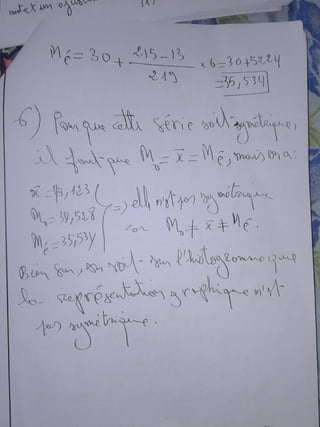 Mé = 30 + (215-13)/219 × 6 = 30 + 5224
= 35,534
6) Pour que cette série soit symétrique,
il faut que Mo = x̄ = Mé, mais on a:
Mo = 34,528
Mé = 35,534
=) elle n'est pas symétrique
car Mo ≠ x̄ ≠ Mé.
Bien sur, on voit sur l'histogramme que
la représentation graphique n'est
pas symétrique.